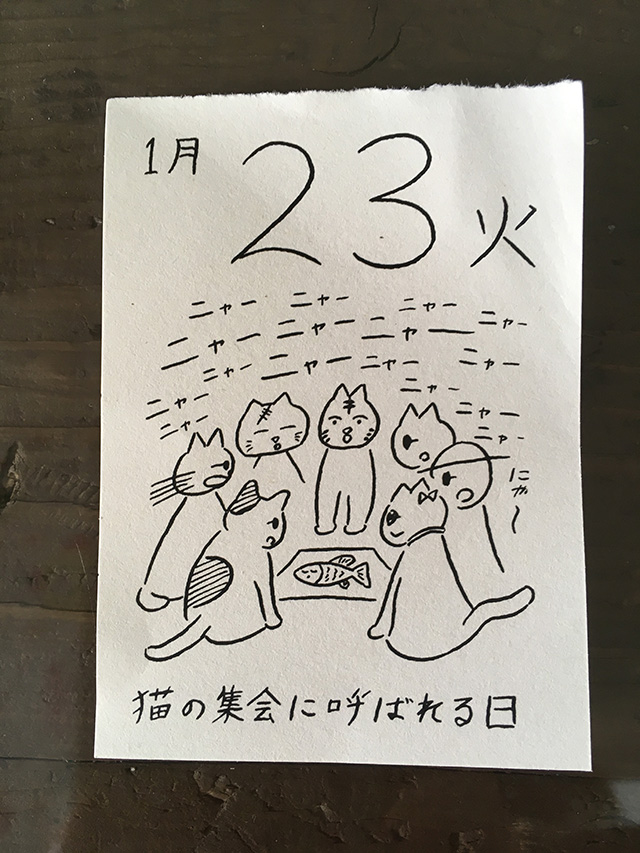 1月 23 火
ニャー ニャー ニャー ニャー
ニャー ニャー ニャー
ニャー ニャー ニャー ニャー
ニャー ニャー ニャー
ニャー ニャー
にゃ〜
猫の集会に呼ばれる日